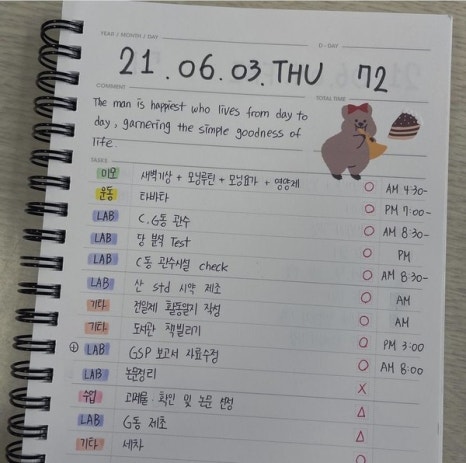 YEAR / MONTH / DAY
D-DAY
21.06.03.THU 72
COMMENT
TOTAL TIME
The man is happiest who lives from day to
day, garnering the simple goodness of
life.
TASKS
미모 새벽기상 + 모닝루틴 + 모닝요가 + 영양제 O AM 4:30-
운동 타바타 O PM 7:00-
LAB C.G동 관수 O AM 8:30-
LAB 당 분석 Test O PM
LAB C동 관수시설 check O AM 8:30-
LAB 산 std 시약 제조 O AM
기타 전일제 활동일지 작성 O AM
기타 도서관 책빌리기 O PM 3:00
⊕ LAB GSP 보고서 자료수정 O AM 8:00
LAB 논문정리 X
수업 고제물 확인 및 논문 선정 △
LAB G동 제초 △
기타 세차 O